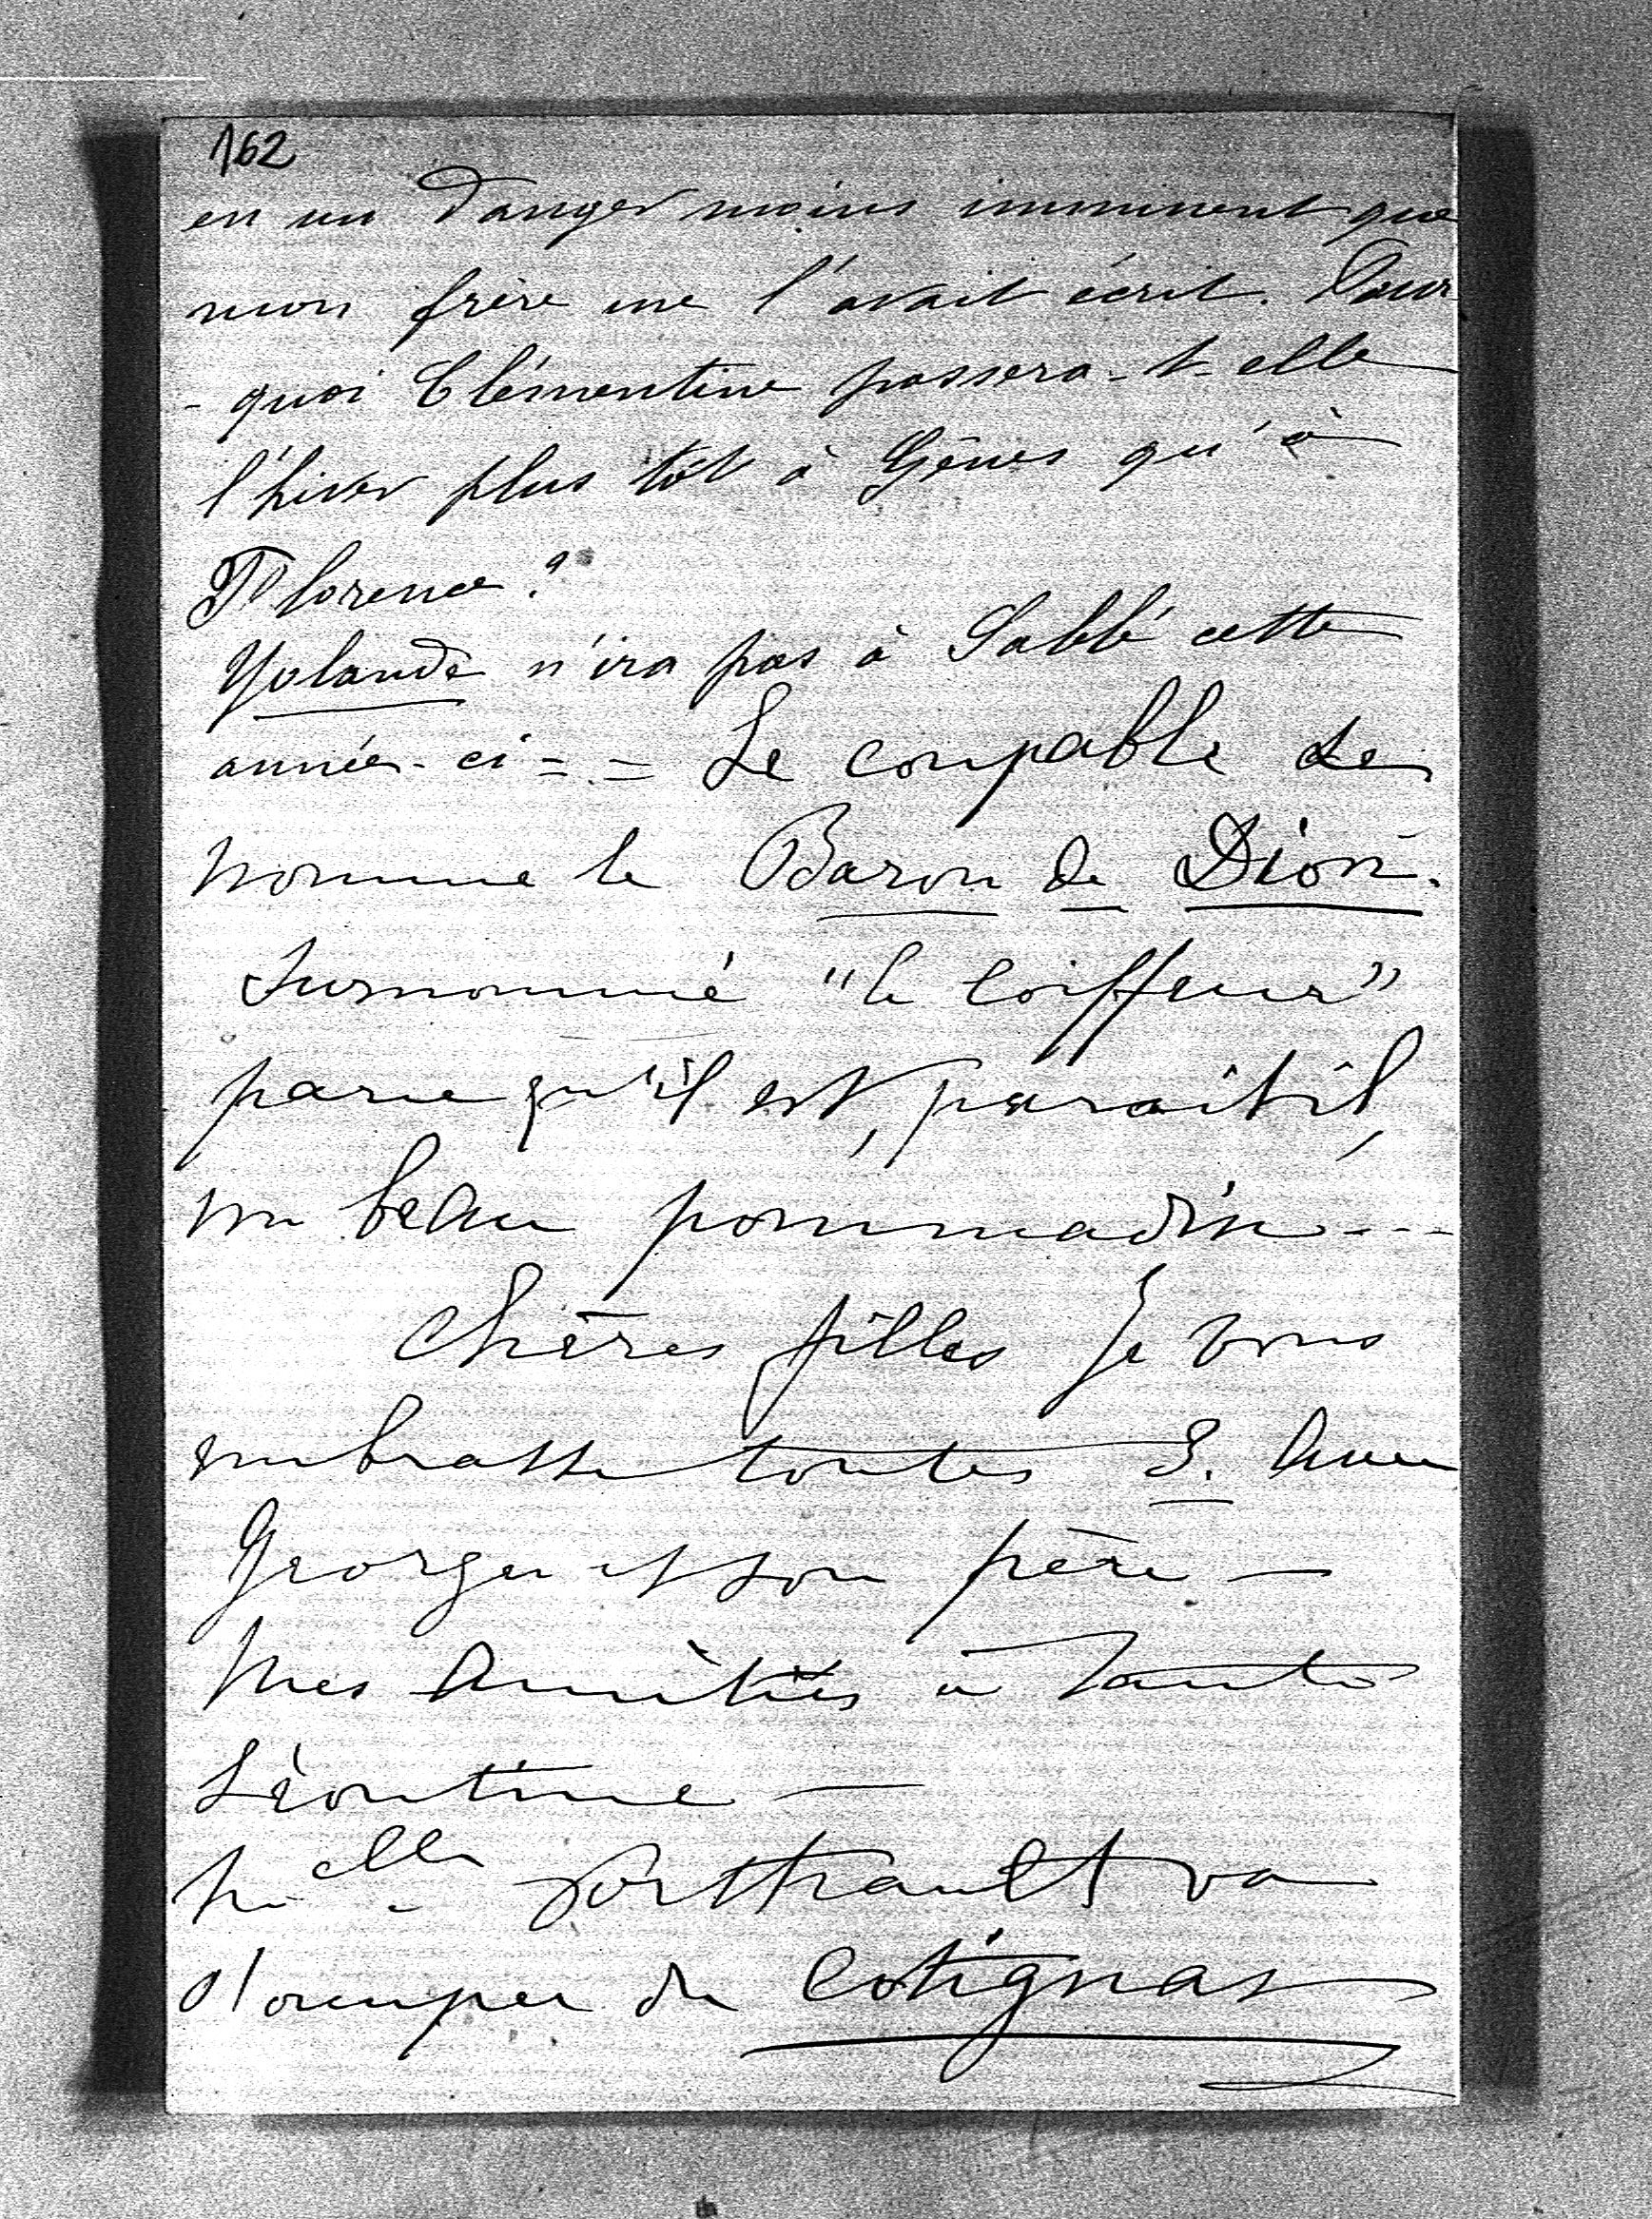 162
en un danger moins imminent que
mon frère me l'avait écrit. Pour
- quoi Clémentine passera-t-elle
l'hiver plus tôt à Gênes qu'à
Florence ?
Yolande n'ira pas à Sablé cette
année-ci = = Le coupable se
nomme le Baron de Dion.
surnommé "le Coiffeur"
parce qu'il est, paraît il,
un beau pommadin ---
Chères filles je vous
embrasse toutes 3. Avec
Georges et son père —
Mes Amitiés à Tante
Léontine —
Melle va
s'occuper du Cotignac